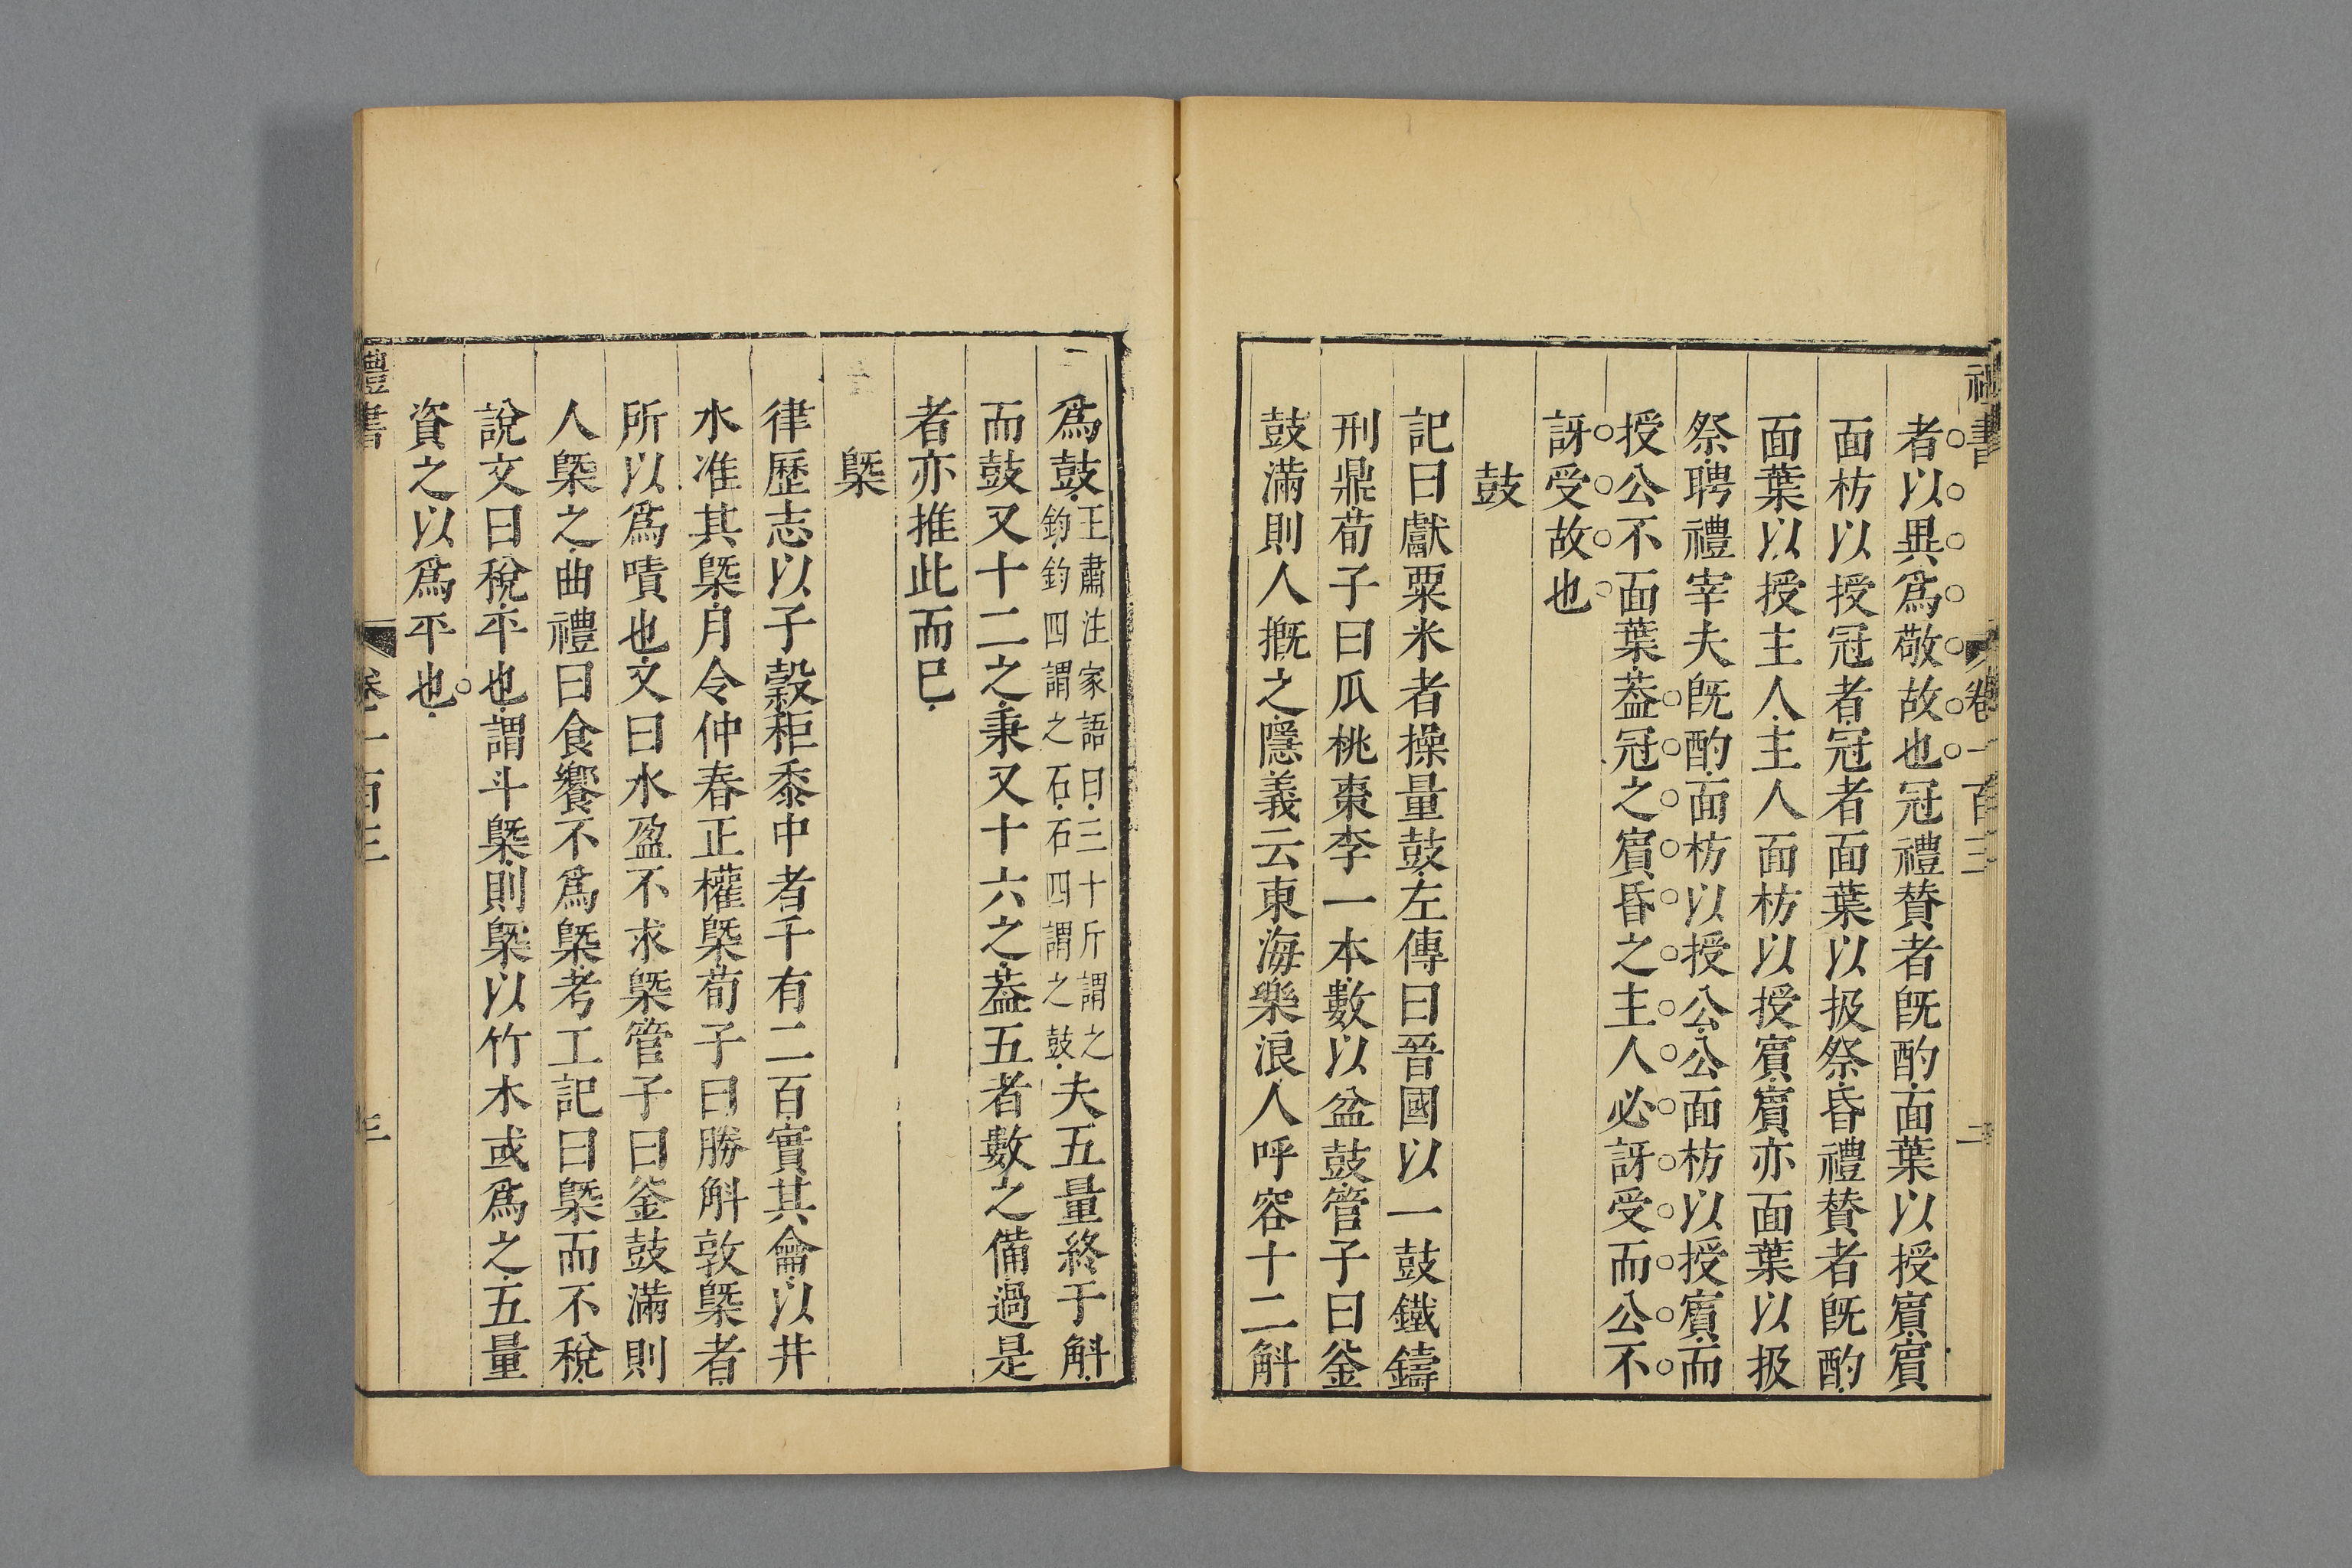 禮書 卷一百三 二
者以異爲敬故也冠禮賛者旣酌面葉以授賔賔
面枋以授冠者冠者面葉以扱祭昏禮賛者旣酌
面葉以授主人主人面枋以授賔賔亦面葉以扱
祭聘禮宰夫旣酌面枋以授公公面枋以授賔而
授公不面葉葢冠之賔昏之主人必訝受而公不
訝受故也
鼓
記曰獻粟米者操量鼓左傳曰晉國以一鼓鐵鑄
刑鼎荀子曰瓜桃棗李一本數以盆鼓管子曰釡
鼓滿則人摡之隱義云東海樂浪人呼容十二斛
爲鼓王肅注家語曰三十斤謂之
鈞鈞四謂之石石四謂之鼓夫五量終于斛
而鼓又十二之秉又十六之葢五者數之備過是
者亦推此而巳
槩
律歷志以子穀秬黍中者千有二百實其龠以井
水准其槩月令仲春正權槩荀子曰勝斛敦槩者
所以爲嘖也文曰水盈不求槩管子曰釡鼓滿則
人槩之曲禮曰食饗不爲槩考工記曰槩而不稅
說文曰稅平也謂斗槩則槩以竹木或爲之五量
資之以爲平也
禮書 卷一百三 三